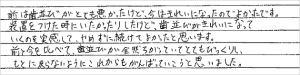 前は歯並びがとても悪かったけど、今はきれいになったのでよかったです。
装置をつけた時にいたかったりしたけど、歯並びがきれいになって
いくのを実感して、やめずに続けてよかったと思います。
前と今を比べて、歯並びが全然ちがっていてとてもびっくりし、
もとに戻らないようにこれからもがんばっていこうと思いました。